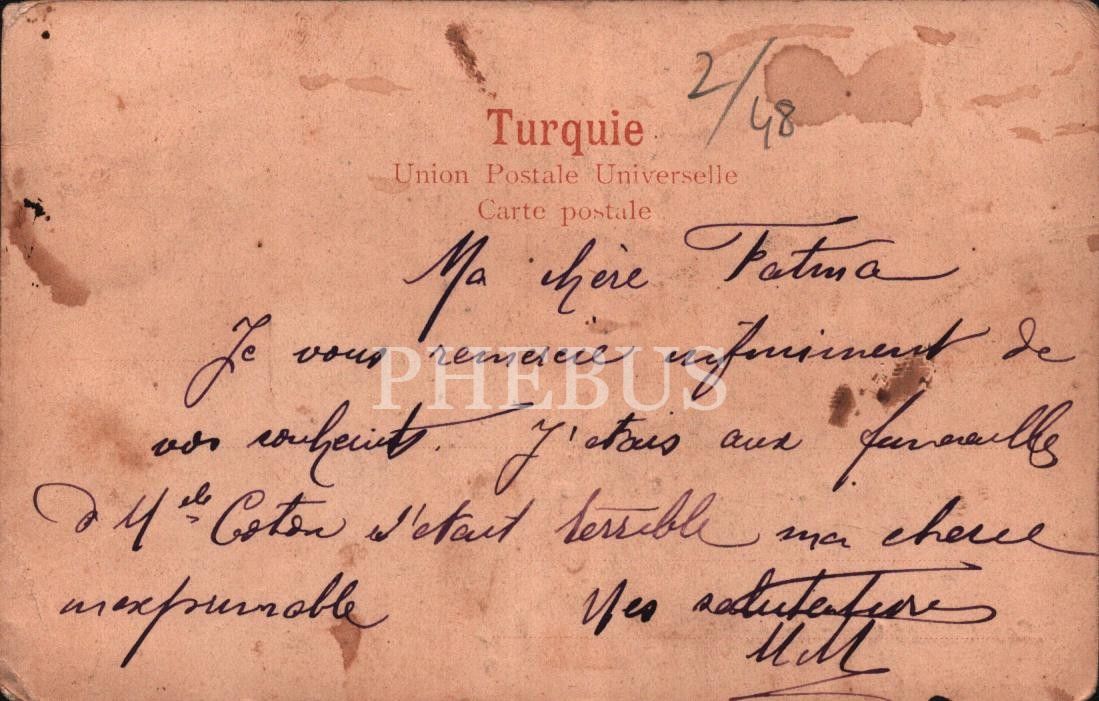 2/48
Turquie
Union Postale Universelle
Carte postale
Ma chère Fatma
Je vous remercie infiniment de
vos souhaits. J'etais aux funerailles
d Mlle Coton c'etait terrible ma cheree
inexprimable Mes salutations
MM
PHEBUS